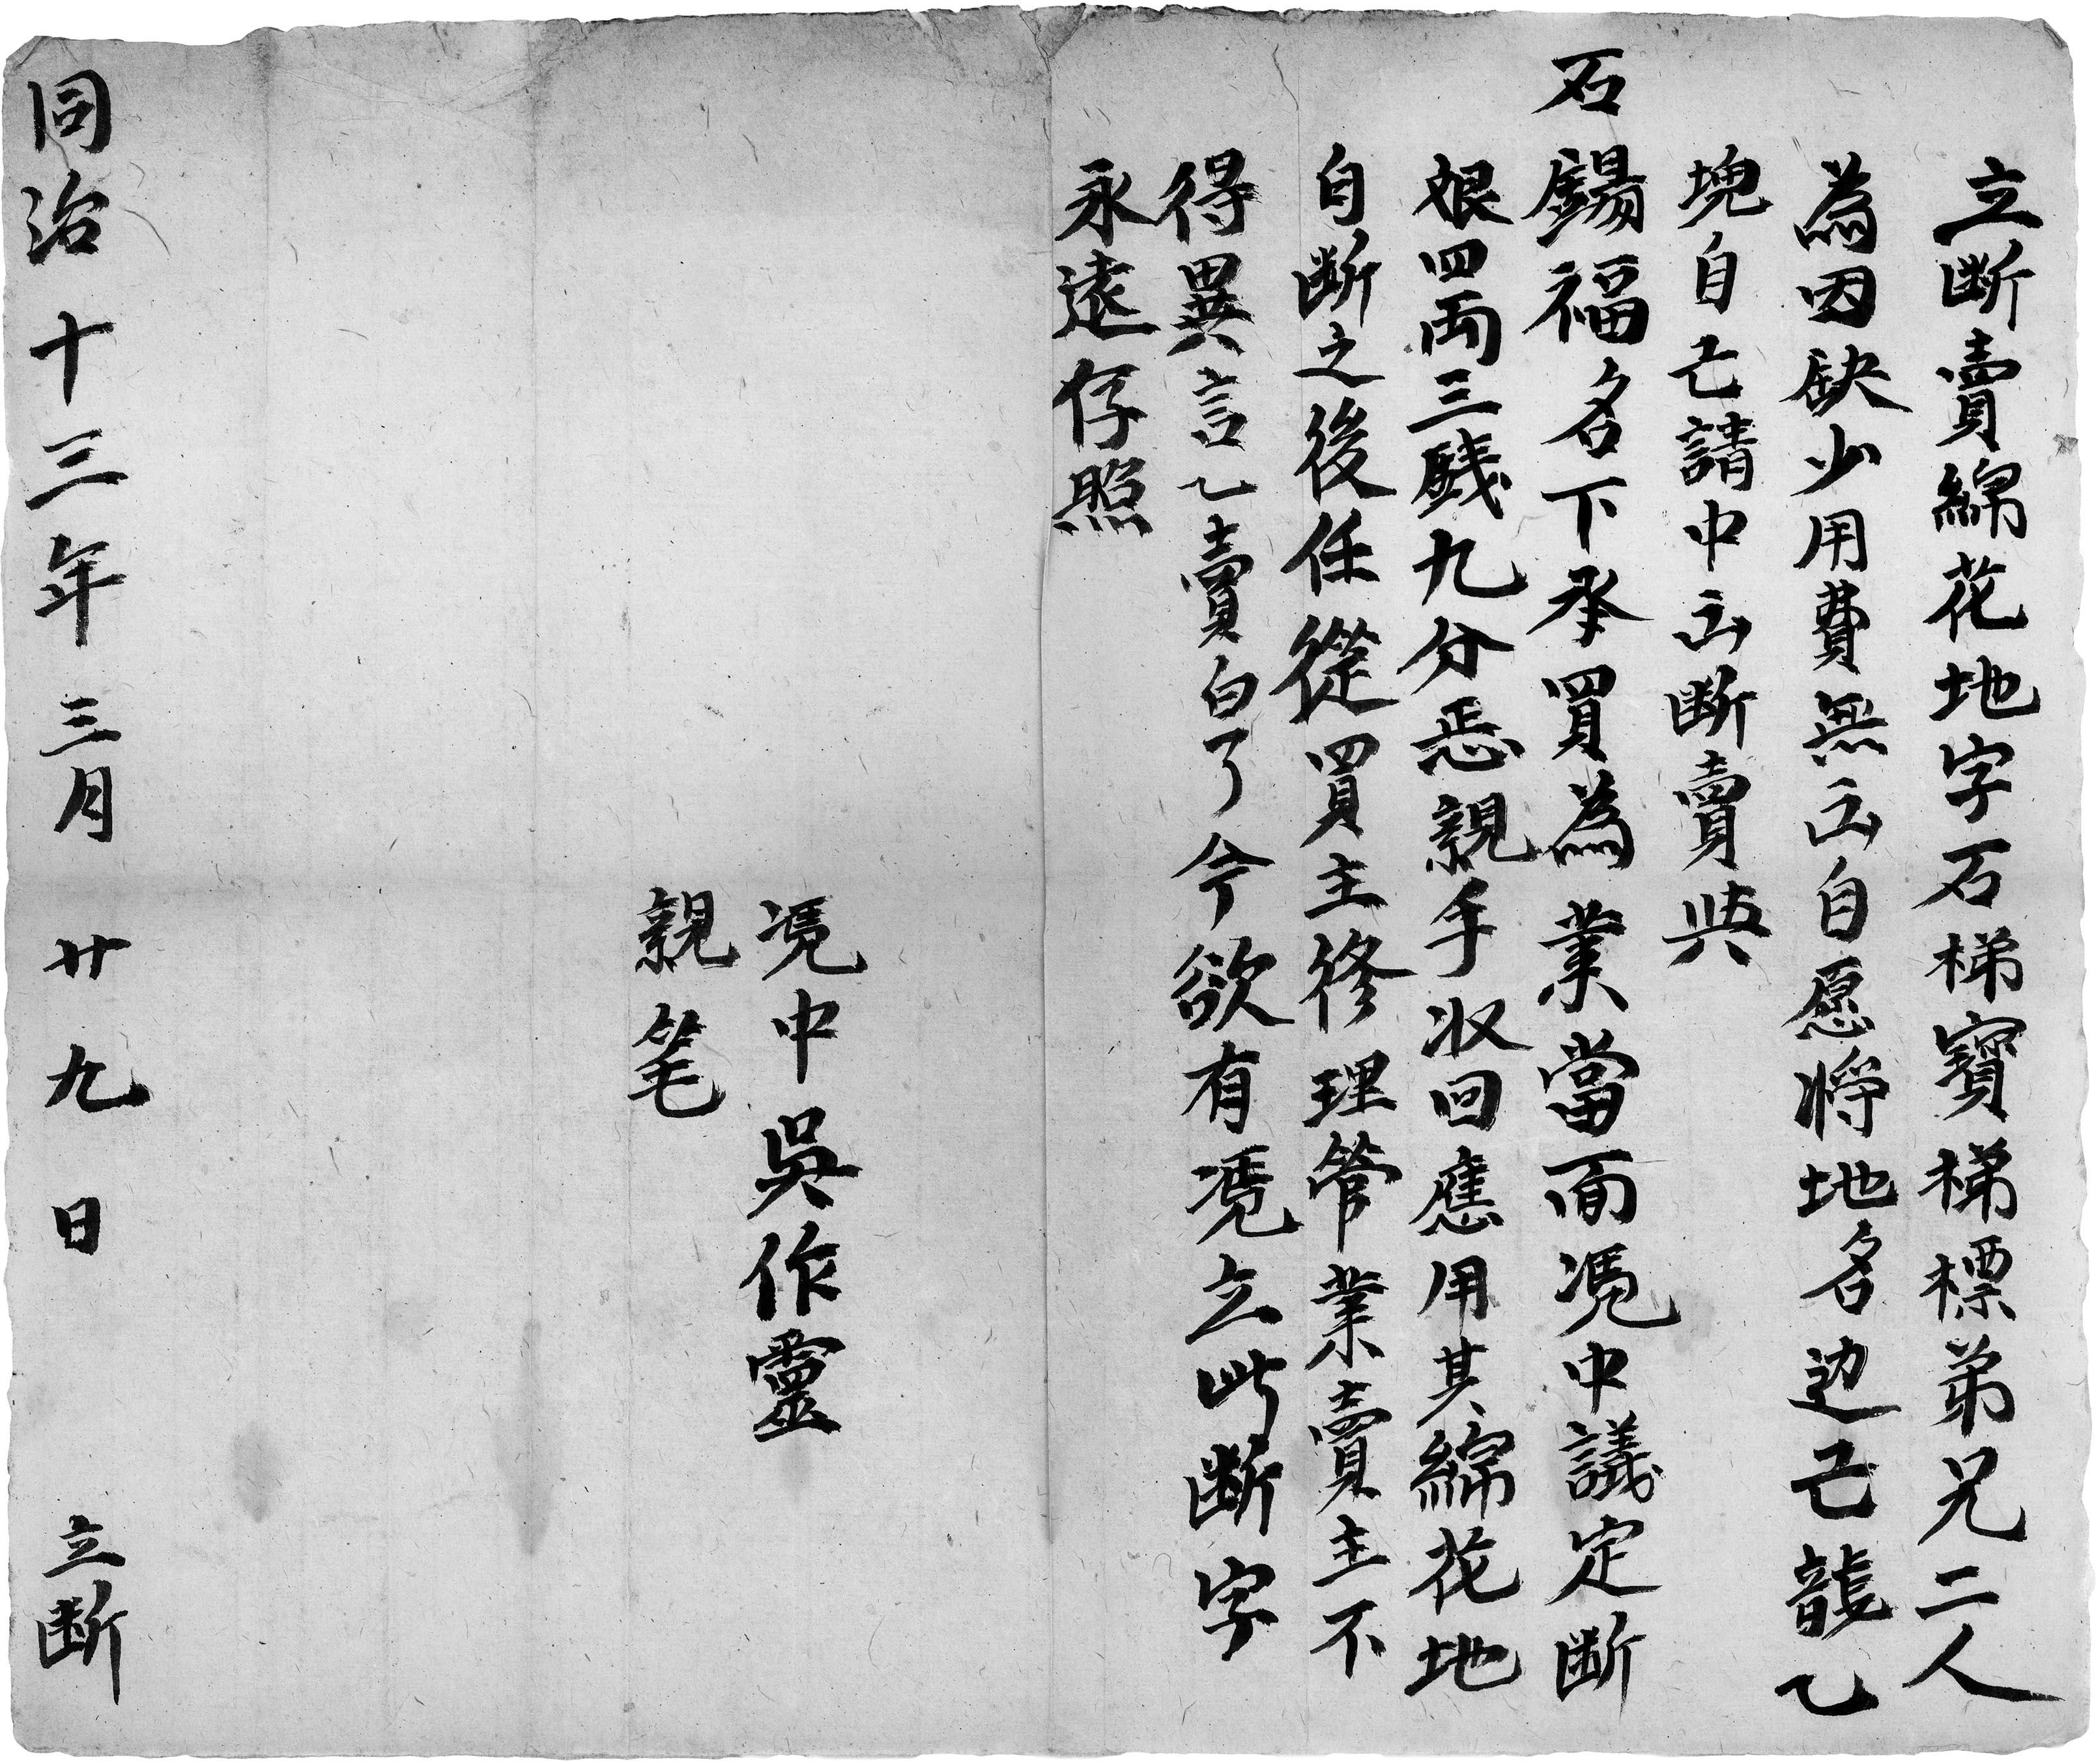 立断賣綿花地字石梯寳梯標弟兄二人
為因缺少用費無出自愿将地名边己龍乙
塊自己請中出断賣與
石錫福名下承買為業當面凴中議定断
艮四両三錢九分悉親手收回應用其綿花地
自断之後任從買主修理管業賣主不
得異言乙賣白了今欲有凴立此断字
永遠存照
凴中吳作靈
親笔
同治十三年三月廿九日 立断